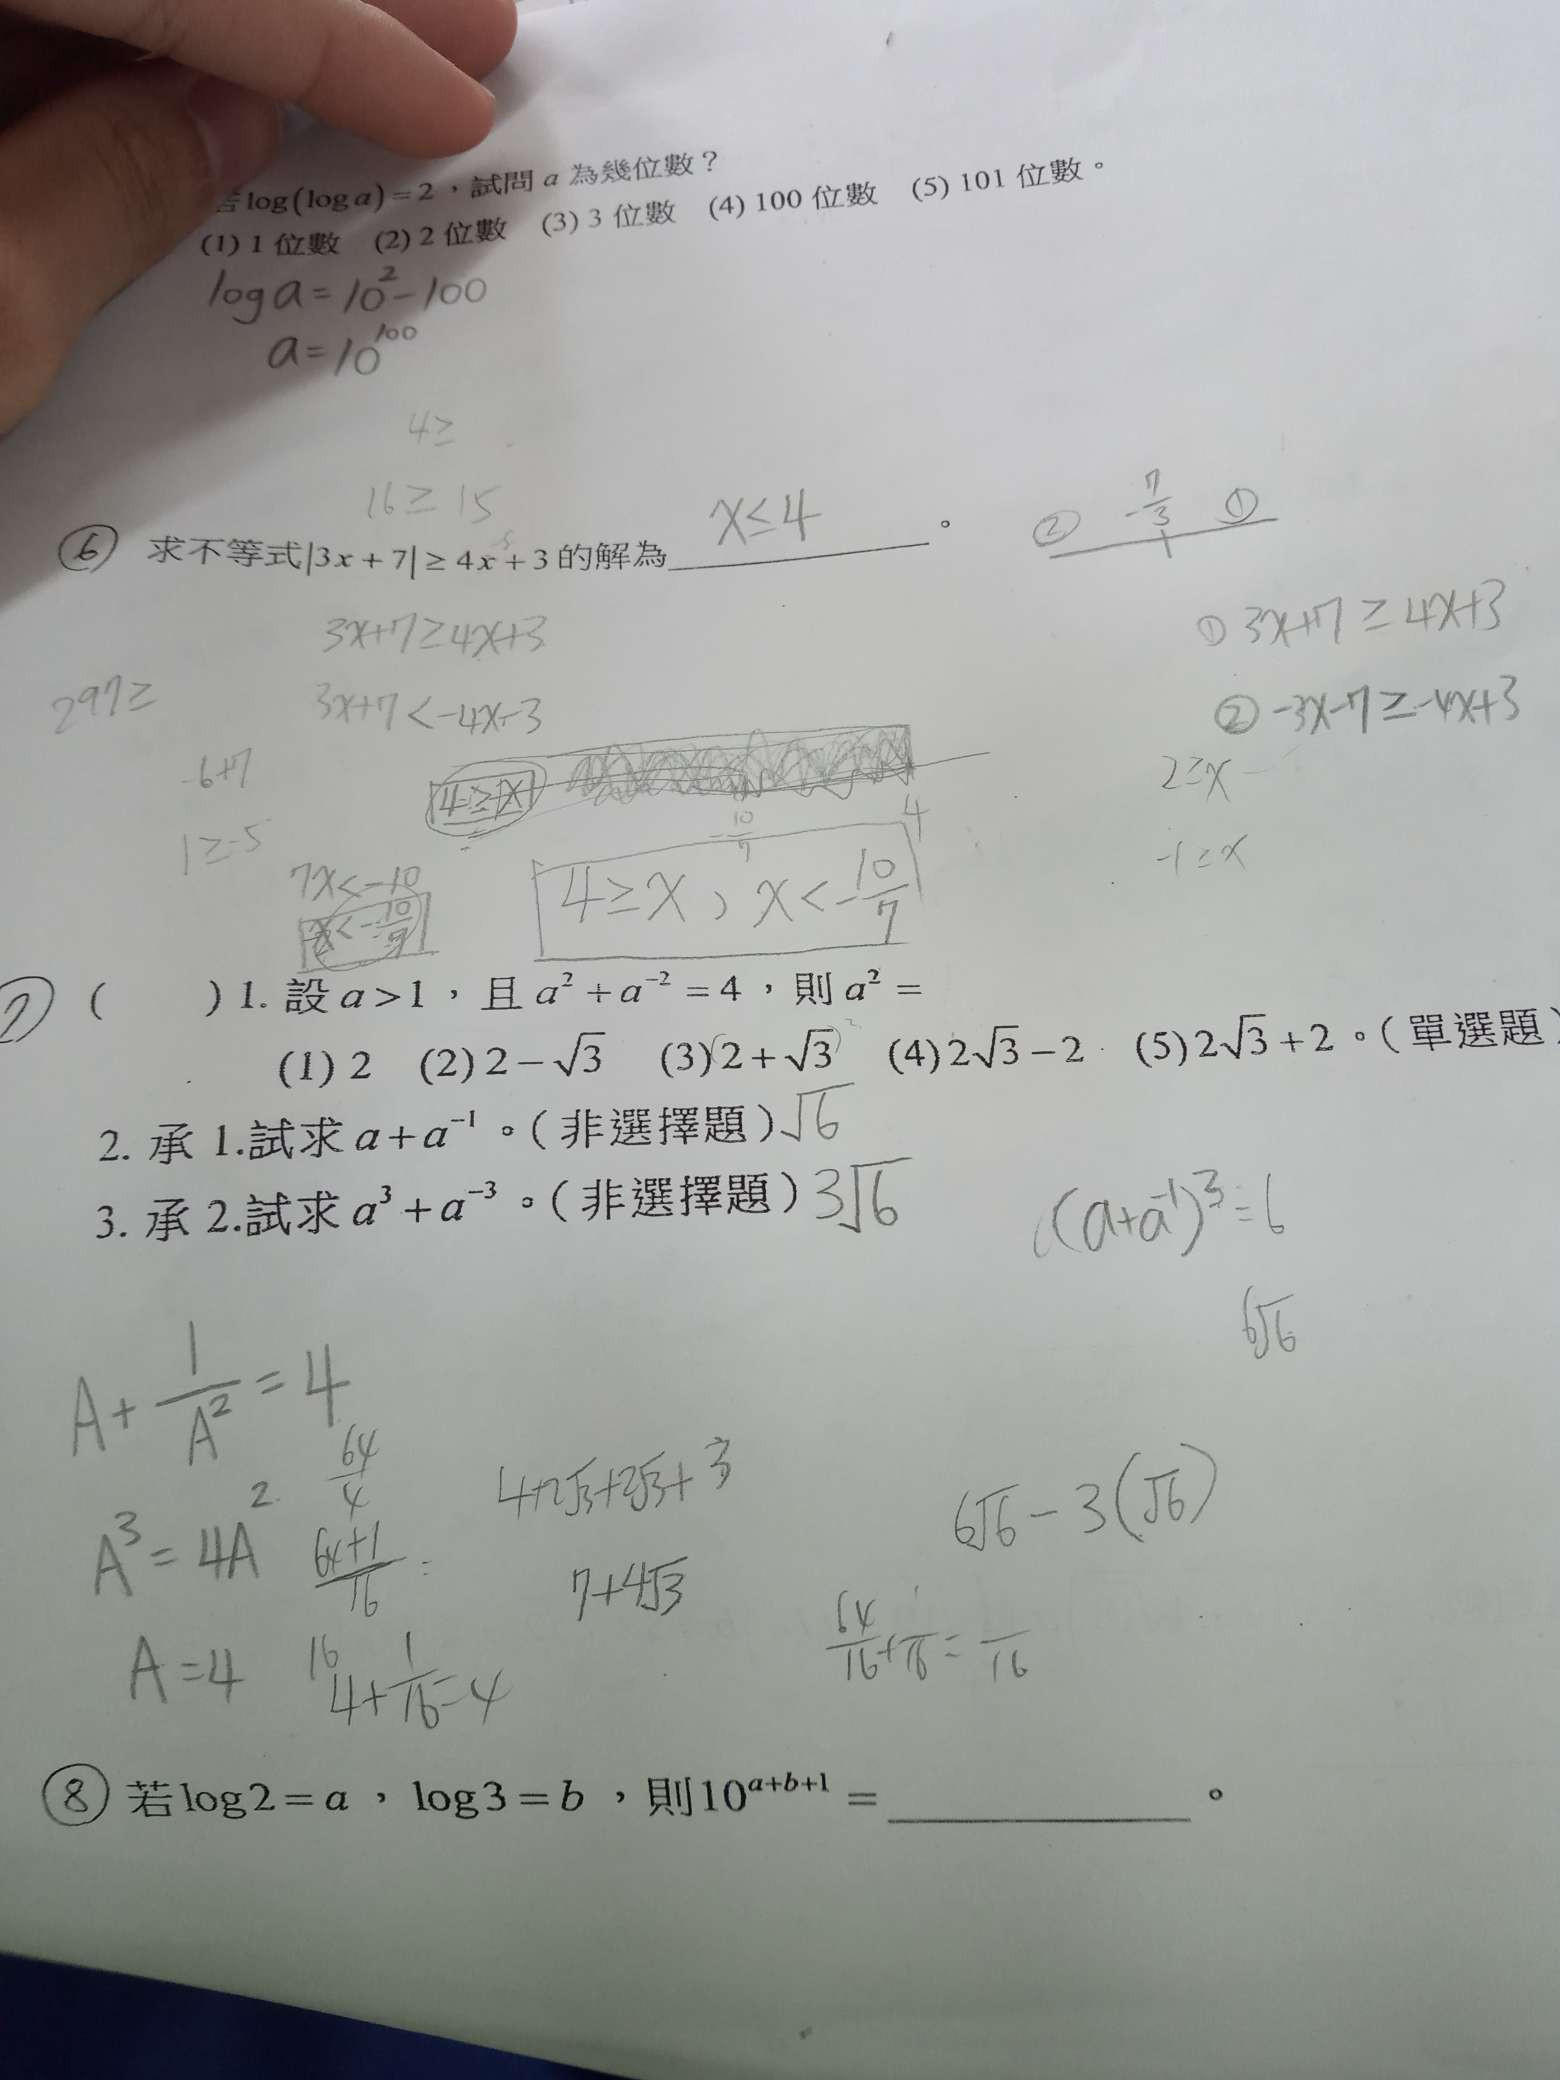 log(log a)=2，試問 a 為幾位數？
(1) 1 位數 (2) 2 位數 (3) 3 位數 (4) 100 位數 (5) 101 位數。
log a = 10² - 100
a = 10¹⁰⁰
4≥
16 ≥ 15
⑥ 求不等式|3x+7|≥4x+3的解為 x≤4 。
② -7/3 ①
3x+7≥4x+3
① 3x+7 ≥ 4x+3
297≥
3x+7<-4x-3
② -3x-7≥-4x+3
-6+7
4≥x
2≥x
-10/7
4
1≥-5
-1≥x
7x<-10
x<-10/7
4≥x , x<-10/7
⑦ ( ) 1. 設 a>1，且 a²+a⁻²=4，則 a²=
(1) 2 (2) 2-√3 (3) 2+√3 (4) 2√3-2 (5) 2√3+2。(單選題)
2. 承 1.試求 a+a⁻¹。(非選擇題) √6
3. 承 2.試求 a³+a⁻³。(非選擇題) 3√6
(a+a⁻¹)³=6
6√6
A+1/A²=4
64/4
4+2√3+2√3+3
6√6-3(√6)
A³=4A²
64+1/16 =
7+4√3
64/16+1/16= /16
A=4
16
4+1/16=4
⑧ 若log2=a，log3=b，則10ᵃ⁺ᵇ⁺¹= 。